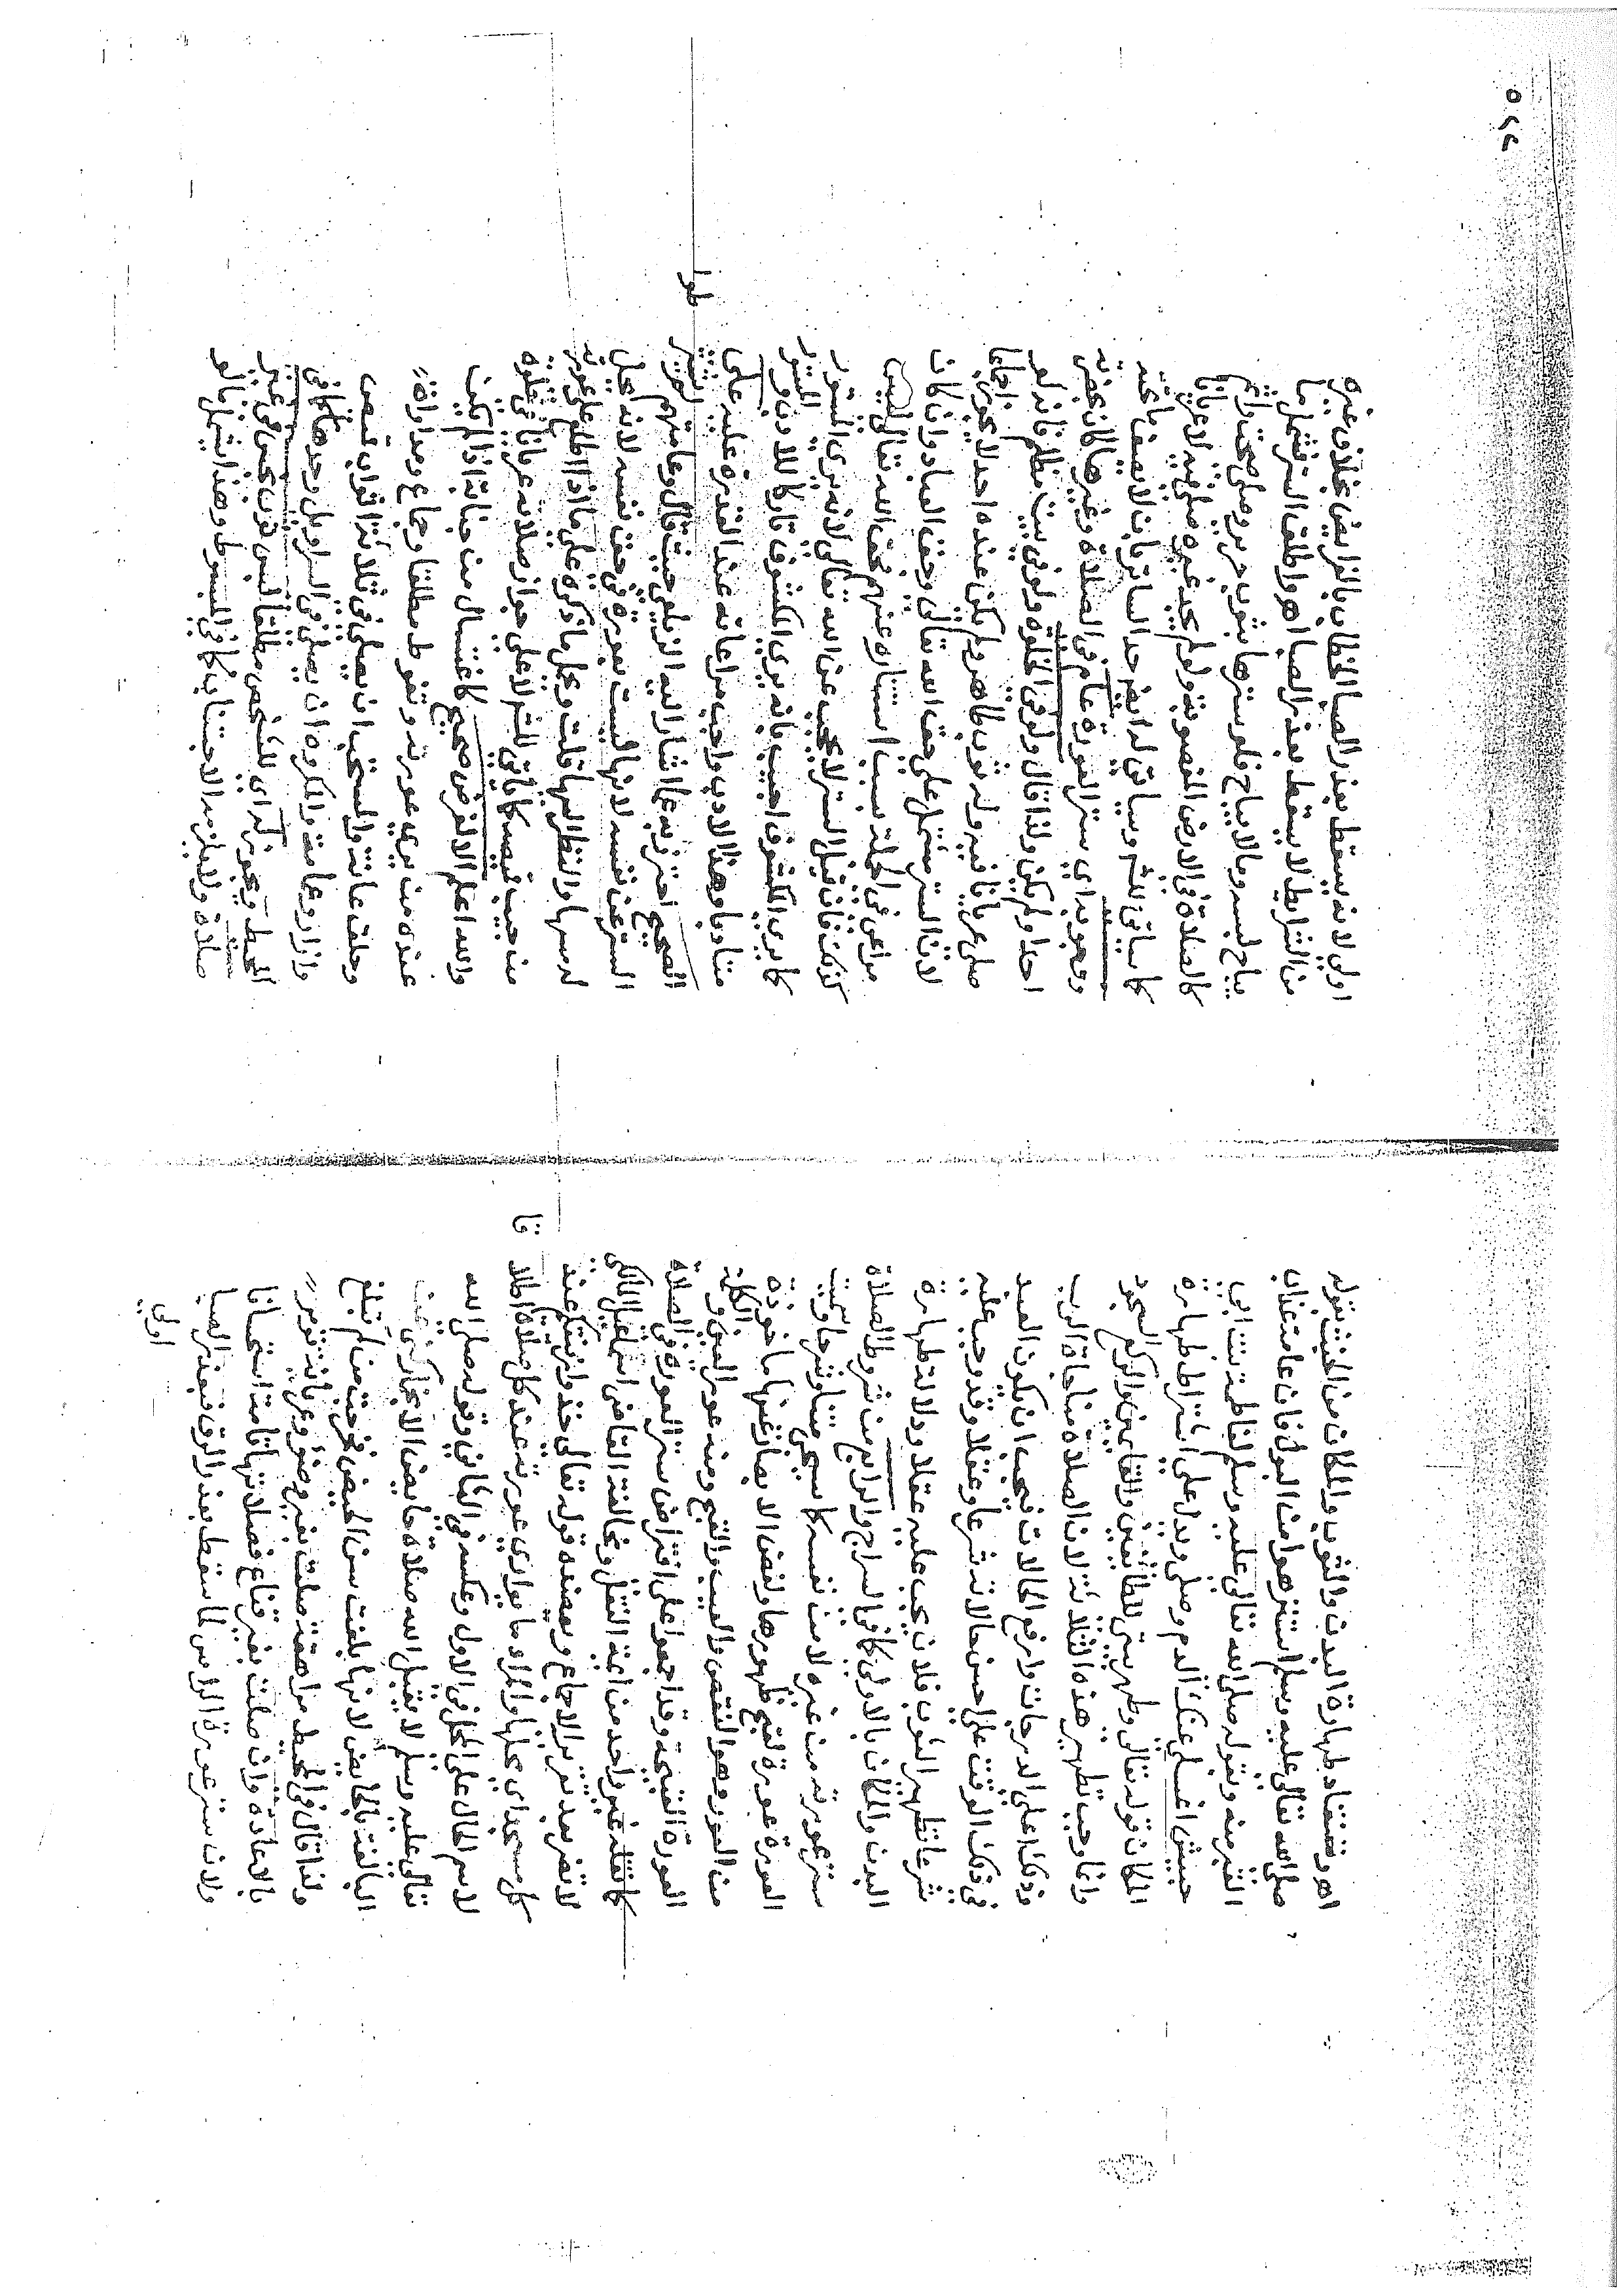 اهـ وتستفاد طهارة البدن والثوب والمكان من الخبث بقوله
صلى الله تعالى عليه وسلم استنزهوا من البول فان عامة عذاب
القبر منه وبقوله صلى الله تعالى عليه وسلم لفاطمة بنت ابي
حبيش اغسلي عنك الدم وصلي ويدل على اشتراط طهارة
المكان قوله تعالى وطهر بيتي للطائفين والقائمين والركع السجود
وانما وجب تطهير هذه الثلاثة لان الصلاة مناجاة الرب
وذلك اعلى الدرجات وارفع الحالات فيجب ان يكون العبد
في ذلك الوقت على احسن حالاته شرعا وعقلا وقد وجب عليه
شرعا تطهير الثوب فلان يجب عليه عقلا ودلالة طهارة
البدن والمكان بالاولى كما في السراج والرابع من شروط الصلاة
ستر عورته من غيره لا من نفسه كما سيجي متنا وشرحا وسميت
العورة عورة لقبح ظهورها ولغض الابصار عنها ماخوذة
من العور وهو النقص والعيب والقبح ومنه عور العين والكلمة
العوراء القبيحة وقد اجمعوا على افتراض ستر العورة في الصلاة
كما نقله غير واحد من ائمة النقل ومخالفة القاضي اسماعيل المالكي
لا تضر بعد تقرير الاجماع ويعضده قوله تعالى خذوا زينتكم عند
كل مسجد اي محلها والمراد ما يواري عورته عند كل صلاة اطلاقا
لاسم الحال على المحل في الاول وعكسه في الثاني وقوله صلى الله
تعالى عليه وسلم لا يقبل الله صلاة حايض الا بخمار كنى عن
البالغة بالحايض لانها بلغت سن الحيض فخرجت من لم تبلغ
ولذا قال في المحيط مراهقة صلت بغير وضوء عريانة تؤمر
بالاعادة وان صلت بغير قناع فصلاتها تامة استحسانا
ولان ستر عورة الراس لما سقط بعذر الرق فبعذر الصبا
اولى
اولى لانه يسقط بعذر الصبا الخطاب بالفرايض بخلاف غيره
من الشرايط لا يسقط بعذر الصبا اهـ واطلق الستر فشمل ما
يباح لبسه وما لا يباح فلو سترها بثوب حرير وصلى صحت واثم
كالصلاة في الارض المغصوبة ولو لم يجد غيره صلى فيه لا عريانا
كما سياتي للشم وسياتي له ايضا حد الساتر بان لا يصف ما تحته
ووجوبه اي ستر العورة عام في الصلاة وغيرها كان بحضرته
احد او لم يكن ولذا قال ولو في الخلوة ولو في بيت مظلم فانه لو
صلى عريانا فيه وله ثوب طاهر ولم يكن عنده احد لا يجوز اجماعا
لان الستر مشتمل على حق الله تعالى وحق العباد وان كان
مراعى في الجملة بسبب استتاره عنهم فحق الله تعالى ليس
كذلك فان قيل الستر لا يحجب عن الله تعالى لانه يرى المستور
كما يرى المكشوف اجيب بانه يرى المكشوف تاركا للادب والمستور
متادبا وهذا الادب واجب مراعاته عند القدرة عليه على
الصحيح احترز به عما اشار اليه الزيلعي حيث قال وعامتهم لم يشترطوا
الستر عن نفسه لانها ليست بعورة في حق نفسه لانه يحل
له مسها والنظر اليها قلت ويحمل ما ذكره على ما اذا اطلع على عورته
من جيب قميصه كما ياتي للشم لا على جواز صلاته عريانا في خلوة
والله اعلم الا لغرض صحيح كاغتسال من جنابة اذا لم يكن
عنده من يرى عورته وتغوط مطلقا وجماع ومداواة
وحلق عانة والمستحب ان يصلي في ثلاثة اثواب قميص
وازار وعمامة والمكروه ان يصلي في السراويل وحدها كما في
المحيط ويجوز له اي للشخص مطلقا لبس ثوب نجس في غير
صلاة ولا يلزمه الاجتناب كما في المبسوط وهذا يشمل ما لو